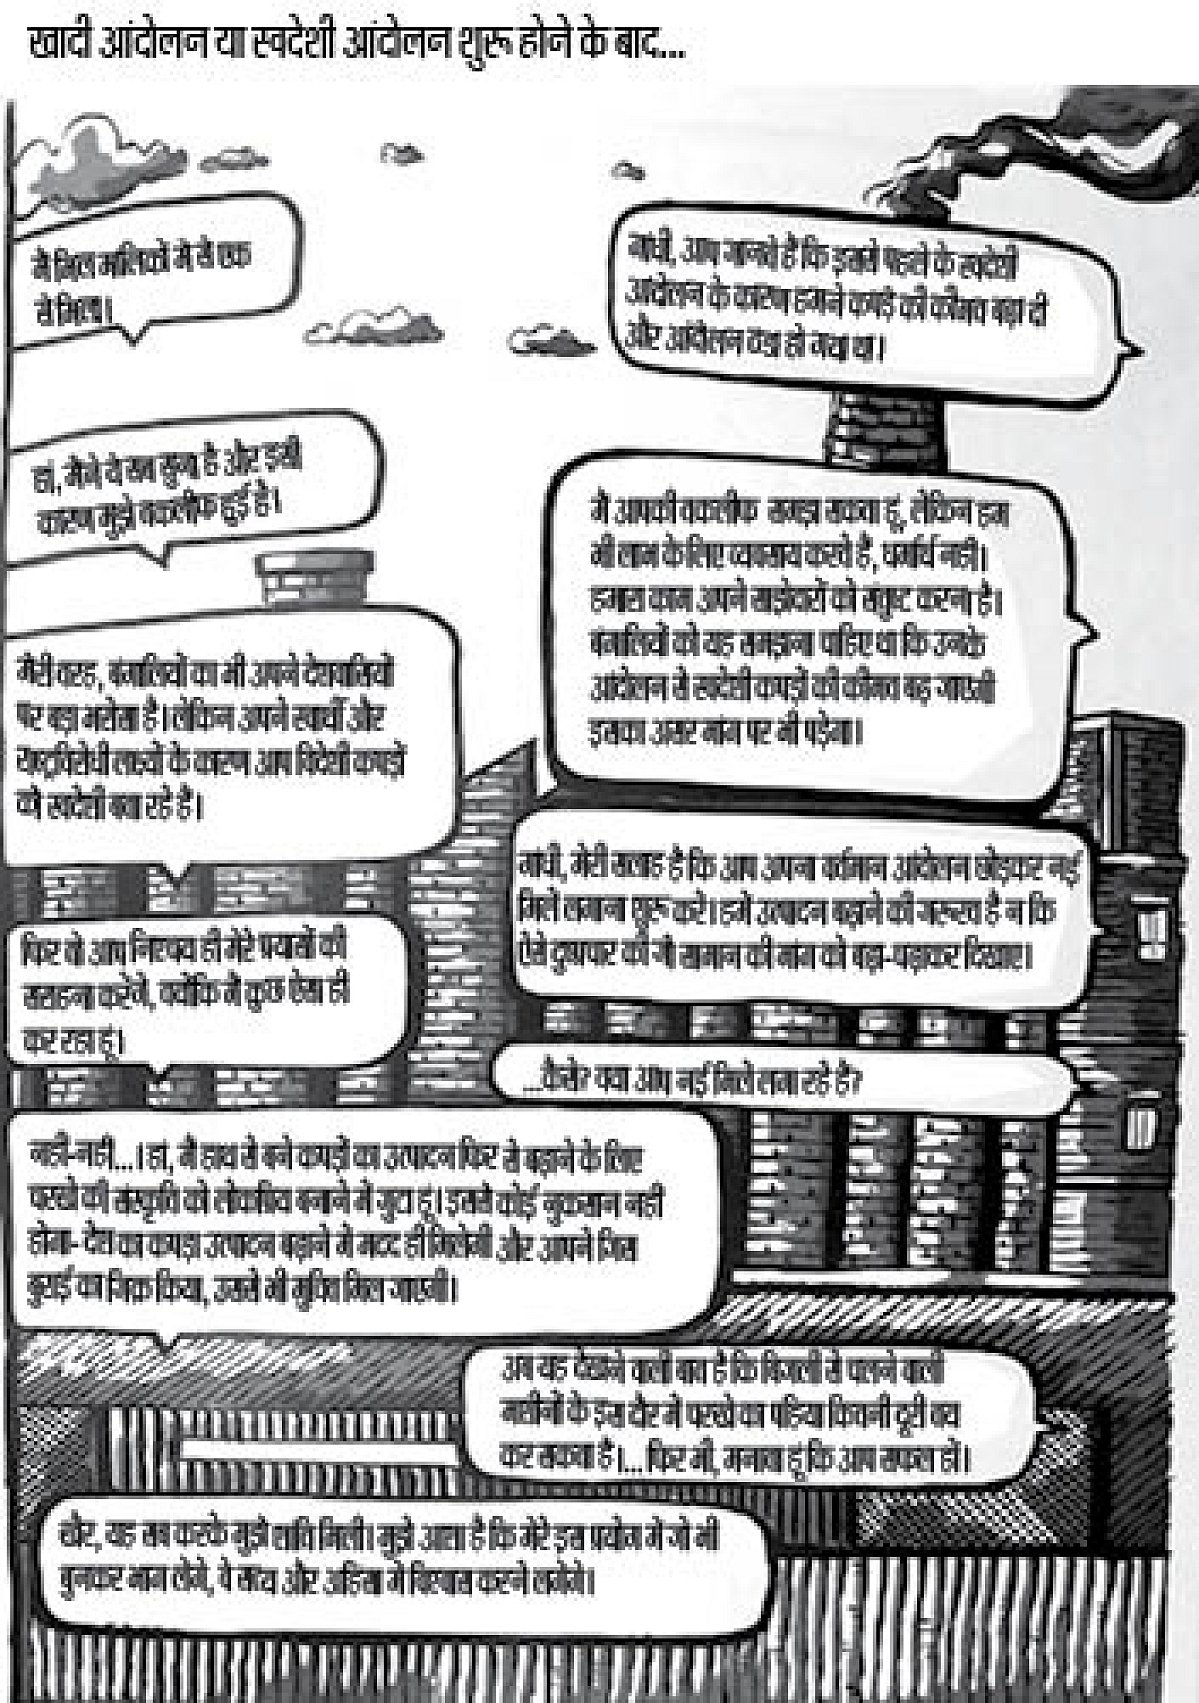 खादी आंदोलन या स्वदेशी आंदोलन शुरू होने के बाद...
मैं मिल मालिकों में से एक
से मिला।
गांधी, आप जानते हैं कि इससे पहले के स्वदेशी
आंदोलन के कारण हमने कपड़े की कीमत बढ़ा दी
और आंदोलन ठंडा हो गया था।
हां, मैंने ये सब सुना है और इसी
कारण मुझे तकलीफ हुई है।
मैं आपकी तकलीफ समझ सकता हूं, लेकिन हम
भी लाभ के लिए व्यवसाय करते हैं, धर्मार्थ नहीं।
हमारा काम अपने साझेदारों को संतुष्ट करना है।
बंगालियों को यह समझना चाहिए था कि उनके
आंदोलन से स्वदेशी कपड़ों की कीमत बढ़ जाएगी
इसका असर मांग पर भी पड़ेगा।
मेरी तरह, बंगालियों का भी अपने देशवासियों
पर बड़ा भरोसा है। लेकिन अपने स्वार्थी और
राष्ट्रविरोधी लक्ष्यों के कारण आप विदेशी कपड़ों
को स्वदेशी बता रहे हैं।
गांधी, मेरी सलाह है कि आप अपना वर्तमान आंदोलन छोड़कर नई
मिलें लगाना शुरू करें। हमें उत्पादन बढ़ाने की जरूरत है न कि
ऐसे दुष्प्रचार की जो सामान की मांग को बढ़ा-चढ़ाकर दिखाए।
फिर तो आप निश्चय ही मेरे प्रयासों की
सराहना करेंगे, क्योंकि मैं कुछ ऐसा ही
कर रहा हूं।
...कैसे? क्या आप नई मिलें लगा रहे हैं?
नहीं-नहीं...। हां, मैं हाथ से बने कपड़ों का उत्पादन फिर से बढ़ाने के लिए
चरखे की संस्कृति को लोकप्रिय बनाने में जुटा हूं। इससे कोई नुकसान नहीं
होगा- देश का कपड़ा उत्पादन बढ़ाने में मदद ही मिलेगी और आपने जिस
बुराई का जिक्र किया, उससे भी मुक्ति मिल जाएगी।
अब यह देखने वाली बात है कि बिजली से चलने वाली
मशीनों के इस दौर में चरखे का पहिया कितनी दूरी तय
कर सकता है।... फिर भी, मनाता हूं कि आप सफल हों।
खैर, यह सब करके मुझे शांति मिली। मुझे आशा है कि मेरे इस प्रयोग में जो भी
बुनकर भाग लेंगे, वे सत्य और अहिंसा में विश्वास करने लगेंगे।